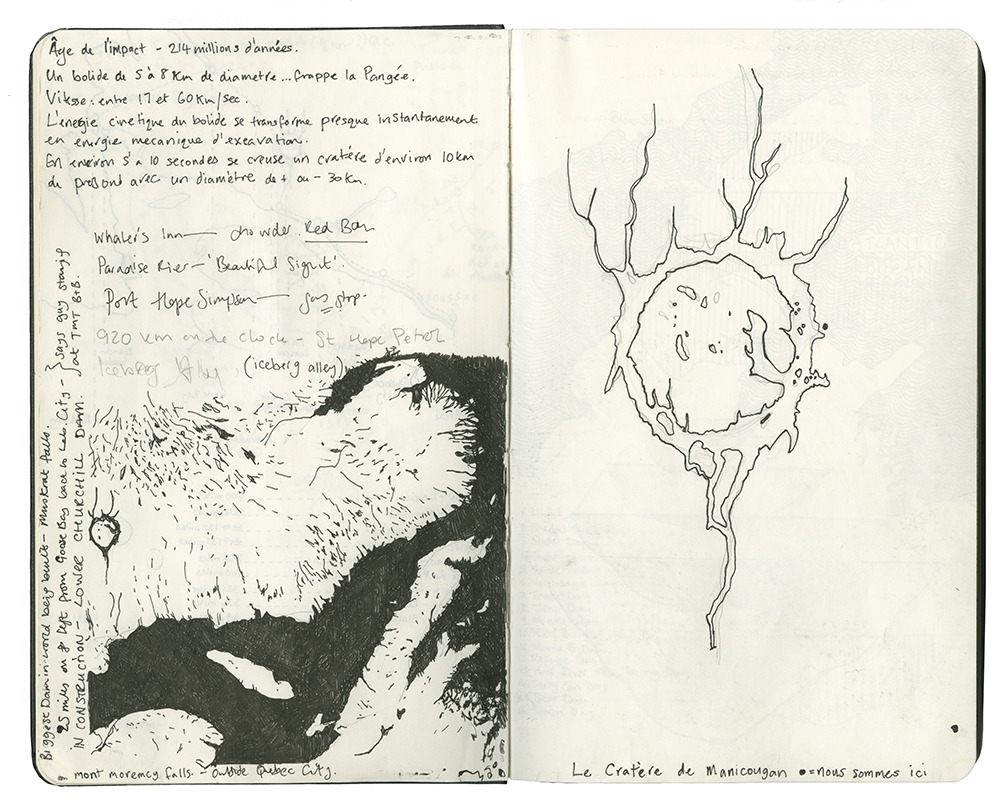 Âge de l'impact - 214 millions d'années.
Un bolide de 5 à 8 Km de diametre... frappe la Pangée.
Vitesse: entre 17 et 60 Km/sec.
L'énegie cinetique du bolide se transforme presque instantanement
en énergie mecanique d'excavation.
En environ 5 a 10 secondes se creuse un cratère d'environ 10 km
de profond avec un diamètre de + ou - 30 Km.
Whaler's Inn — chowder. Red Bay
Paradise River - 'Beautiful Signet'.
Port Hope Simpson — gas stop-
920 km on the clock - St Hope Petrol
Iceberg Alley (iceberg alley)
Biggest Dam in world being built - Muskrat Falls.
25 miles on left from Goose Bay back to Lab City - } says guy staying
IN CONSTRUCTION - LOWER CHURCHILL DAM. } at TMT B+B.
mont moremcy falls. - Outside Quebec City.
Le Cratère de Manicougan • = nous sommes ici